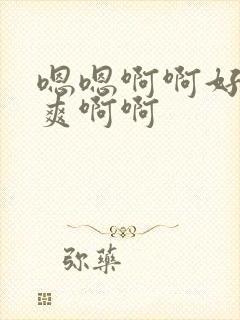 嗯嗯啊啊好
爽啊啊
弥药